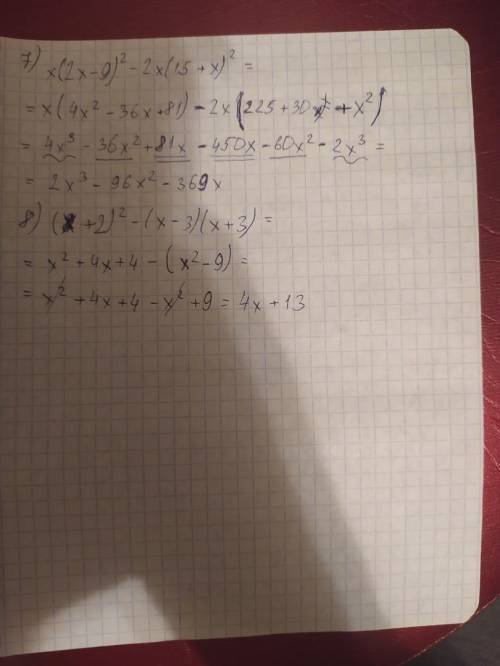 7) x(2x-9)² - 2x(15+x)² =
= x(4x² - 36x + 81) - 2x(225 + 30x + x²)
= 4x³ - 36x² + 81x - 450x - 60x² - 2x³ =
= 2x³ - 96x² - 369x
8) (x+2)² - (x-3)(x+3) =
= x² + 4x + 4 - (x² - 9) =
= x² + 4x + 4 - x² + 9 = 4x + 13